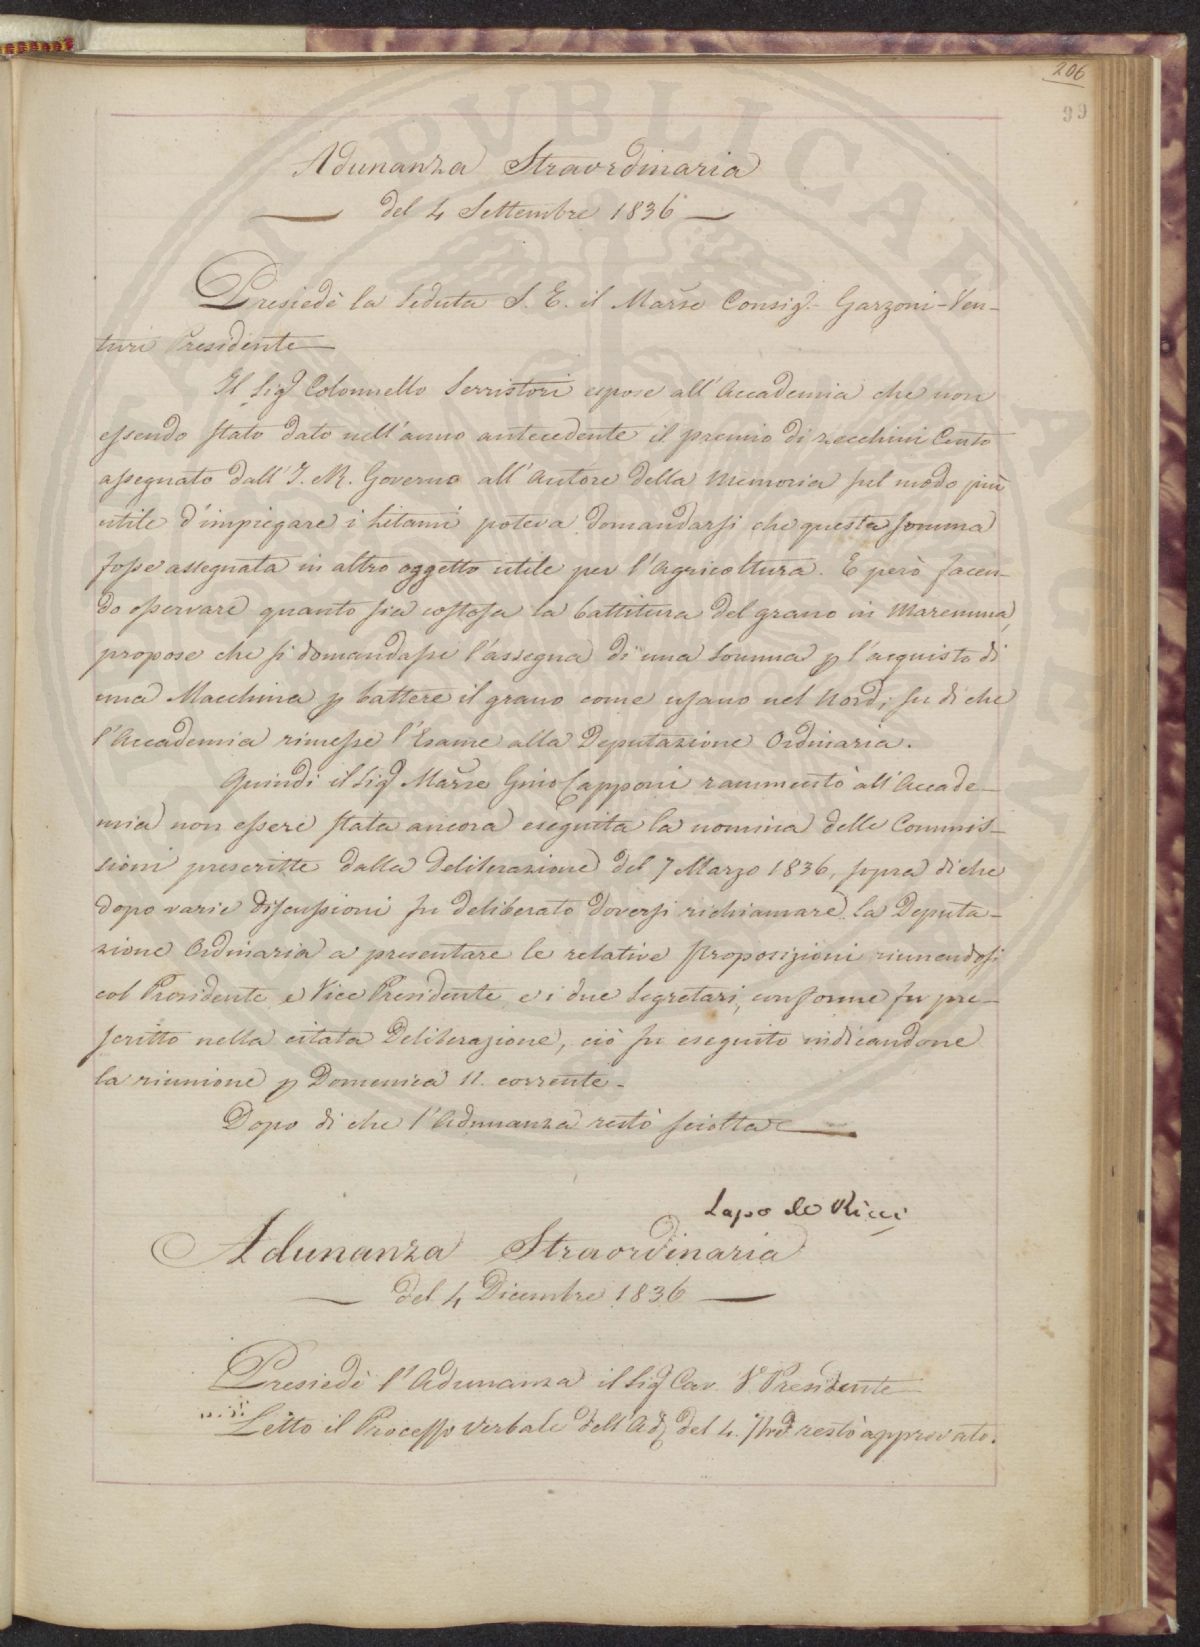 206
99
Adunanza Straordinaria
del 4 Settembre 1836
Presiedè la Seduta S. E. il Marse Consigr. Garzoni-Ven-
turi Presidente
Il Sigr Colonnello Serristori espose all'Accademia che non
essendo stato dato nell'anno antecedente il premio di zecchini Cento
assegnato dall'I. e R. Governo all'Autore della Memoria sul modo più
utile d'impiegare i Litami poteva domandarsi che questa somma
fosse assegnata in altro oggetto utile per l'Agricoltura. E però facen-
do osservare quanto sia costosa la battitura del grano in Maremma,
propose che si domandasse l'assegna di una Somma p l'acquisto di
una Macchina p battere il grano come usano nel Nord; su di che
l'Accademia rimesse l'Esame alla Deputazione Ordinaria.
Quindi il Sigr Marse Gino Capponi rammentò all'Accade-
mia non essere stata ancora eseguita la nomina delle Commis-
sioni prescritte dalla Deliberazione del 7 Marzo 1836, sopra di che
dopo varie discussioni fu deliberato doversi richiamare la Deputa-
zione Ordinaria a presentare le relative proposizioni riunendosi
col Presidente e Vice Presidente e i due Segretari, conforme fu pre-
scritto nella citata Deliberazione, ciò fu eseguito indicandone
la riunione p Domenica 11. corrente.
Dopo di che l'Adunanza restò sciolta
Lapo de Ricci
Adunanza Straordinaria
del 4 Dicembre 1836
Presiedè l'Adunanza il Sigr Cav. V. Presidente
Letto il Processo Verbale dell'Adza del 4. 7bre restò approvato.